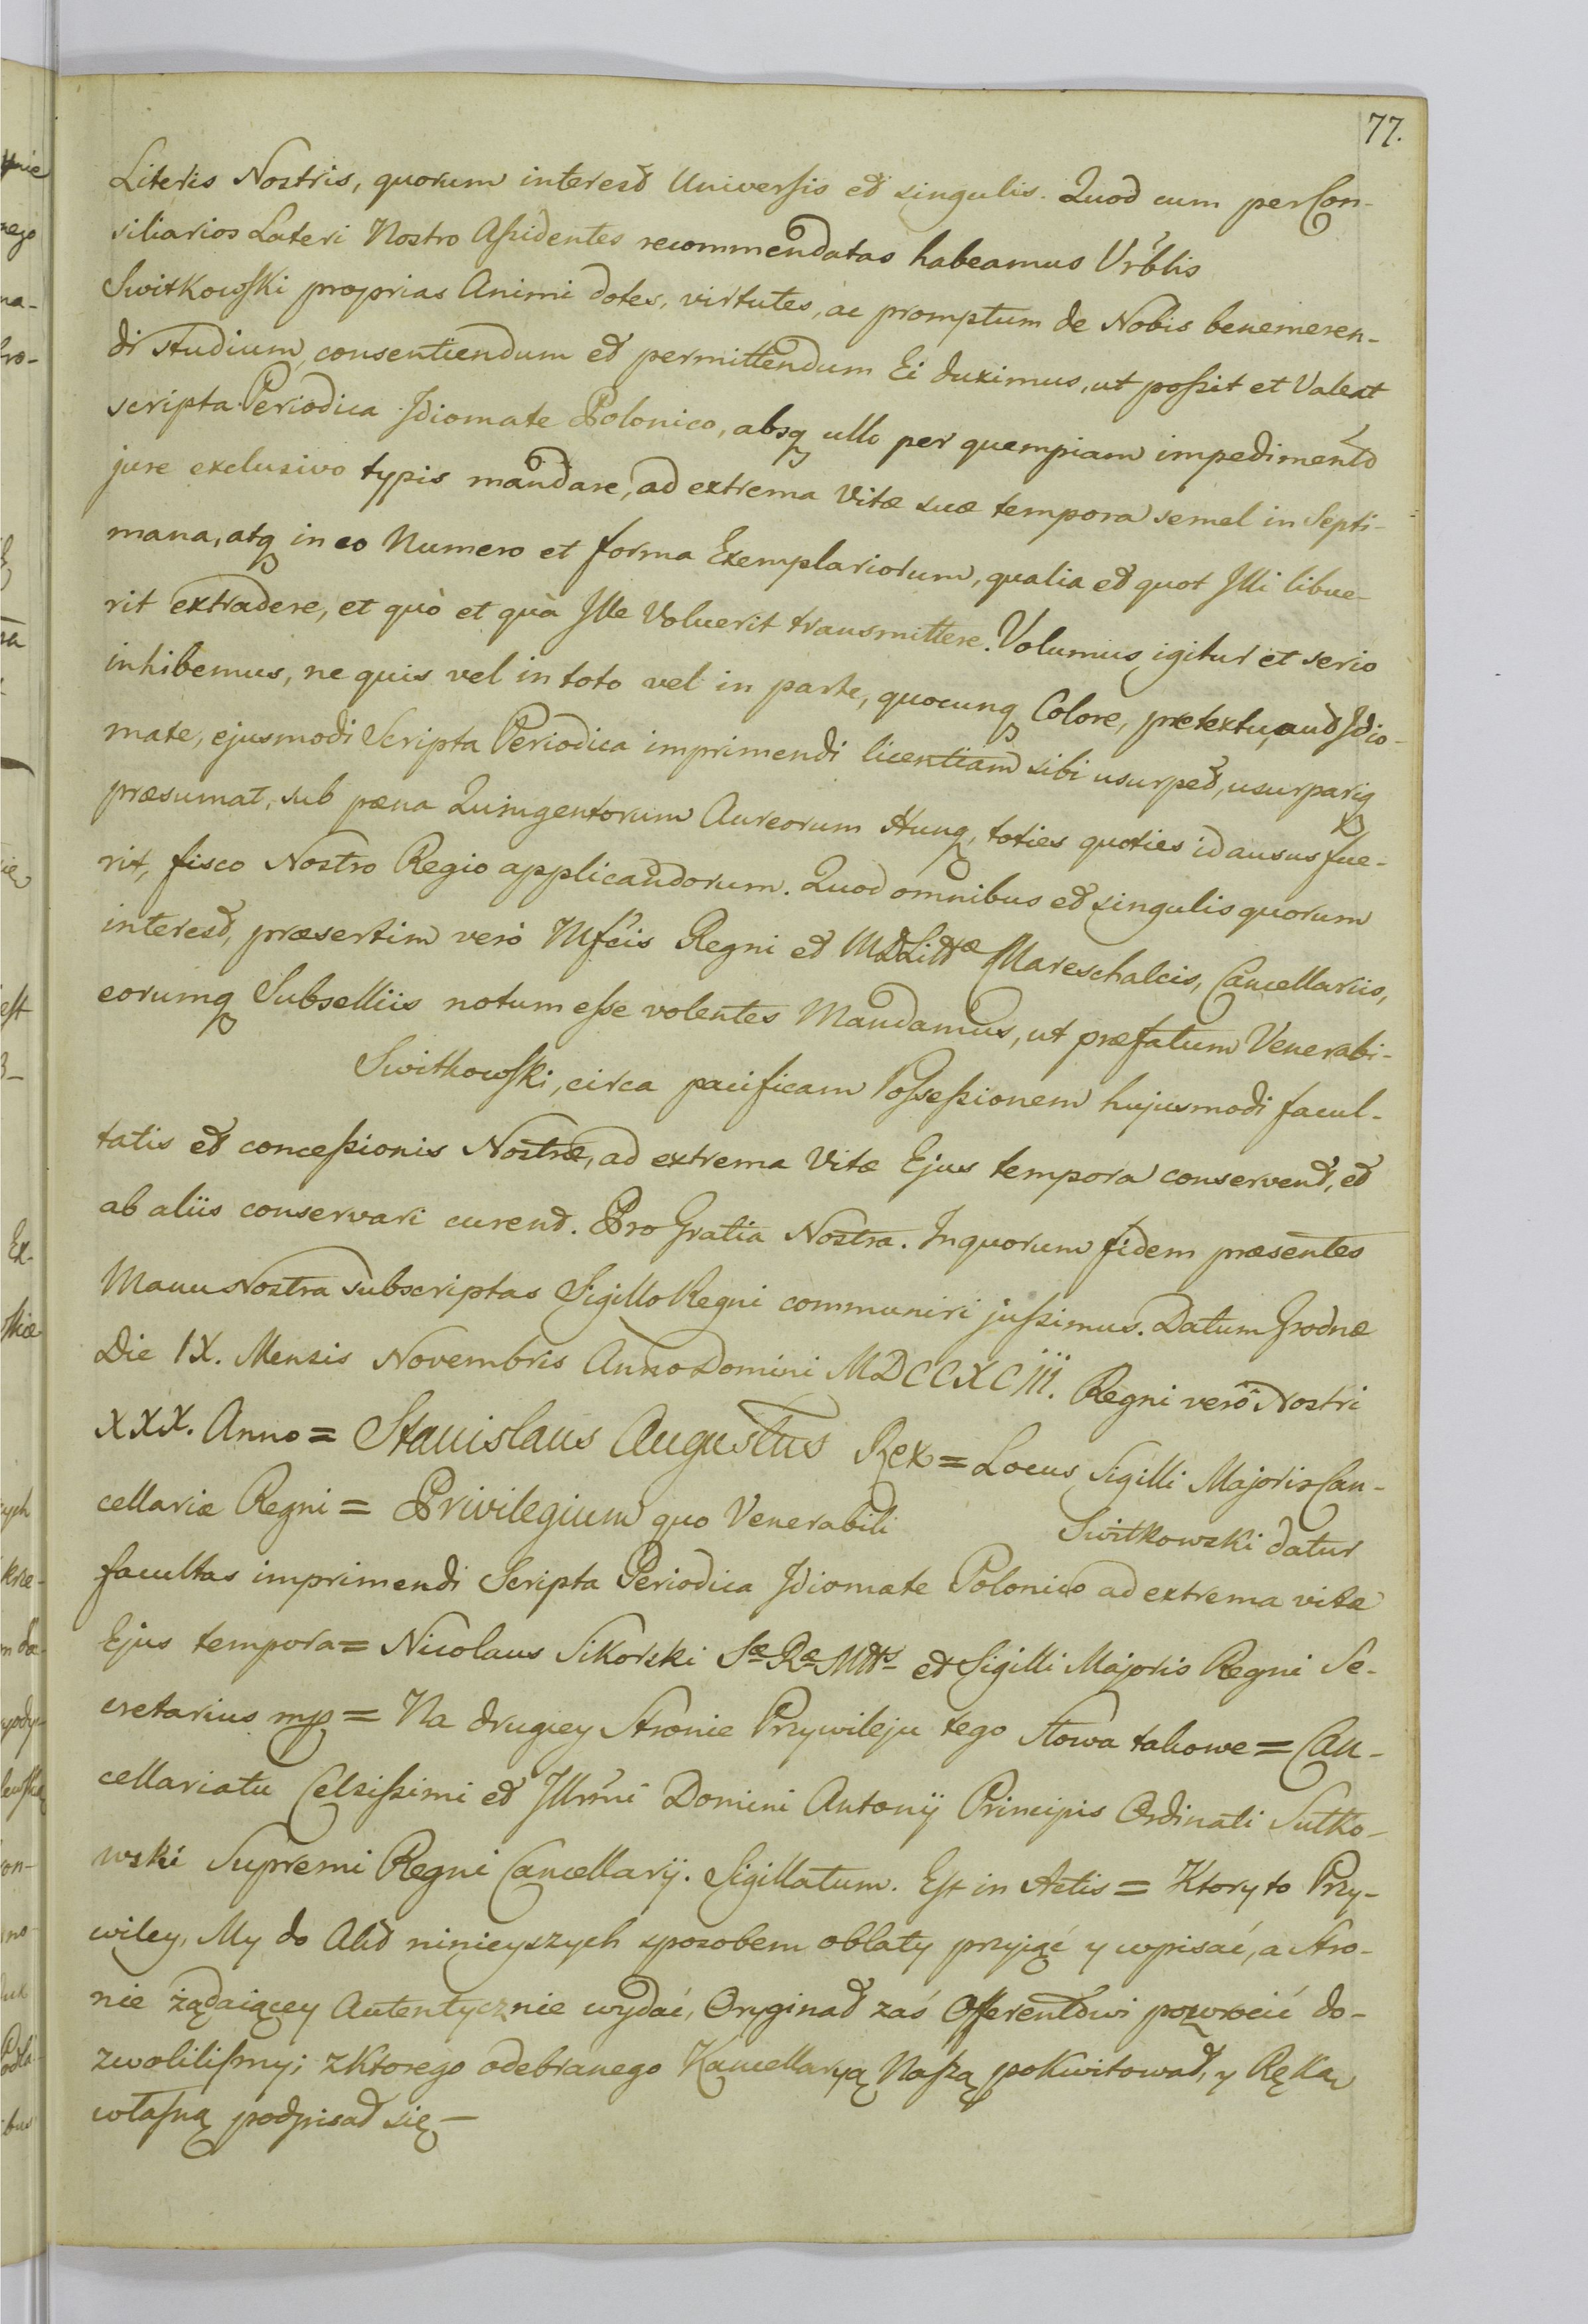 77.
Literis Nostris, quorum interest Universis et singulis. Quod cum per Con-
siliarios Lateri Nostro Aßidentes recommendatas habeamus Vrblis
Switkowski proprias Animi dotes, virtutes, ac promptum de Nobis benemeren-
di studium, consentiendum et permittendum Ei duximus, ut poßit et Valeat
scripta Periodica Idiomate Polonico, absq ullo per quempiam impedimento
jure exclusivo typis mandare, ad extrema Vitæ suæ tempora semel in Septi-
mana, atq in eo Numero et forma Exemplariorum, qualia et quot Illi libue-
rit extradere, et quò et quà Ille Voluerit transmittere. Volumus igitur et serio
inhibemus, ne quis vel in toto vel in parte, quocunq Colore, prætextu, aut Idio-
mate, ejusmodi Scripta Periodica imprimendi licentiam sibi usurpet, usurpariq
præsumat, sub pæna Quingentorum Aureorum Hung, toties quoties id ausus fue-
rit, fisco Nostro Regio applicandorum. Quod omnibus et singulis quorum
interest, præsertim verò Mfcis Regni et MDLittæ Mareschalcis, Cancellariis,
eorumq Subselliis notum eße volentes Mandamus, ut præfatum Venerabi-
Switkowski, circa pacificam Poßeßionem hujusmodi facul-
tatis et conceßionis Nostræ, ad extrema Vitæ Ejus tempora conservent, et
ab aliis conservari curent. Pro Gratia Nostra. In quorum fidem præsentes
Manu Nostra subscriptas Sigillo Regni communiri jußimus. Datum Grodnæ
Die IX. Mensis Novembris Anno Domini MDCCXCIII. Regni verò Nostri
XXX. Anno = Stanislaus Augustus Rex = Locus Sigilli Majoris Can-
cellariæ Regni = Privilegium quo Venerabili Switkowski datur
facultas imprimendi Scripta Periodica Idiomate Polonico ad extrema vitæ
Ejus tempora = Nicolaus Sikorski Sæ Ræ Mttis et Sigilli Majoris Regni Se-
cretarius mp = Na drugiey Stronie Przywileju tego Słowa takowe = Can-
cellariatu Celsißimi et Illrmi Domini Antonij Principis Ordinati Sułko-
wski Supremi Regni Cancellarij. Sigillatum. Est in Actis = Ktory to Przy-
wiley, My do Akt ninieyszych sposobem oblaty przyiąć y wpisać, a Stro-
nie żądaiącey Autentycznie wydać, Oryginał zaś Offerentowi powrocić do-
zwoliliśmy; z Ktorego odebranego Kancellaryą Naszą pokwitował, y Ręką
własną podpisał się —